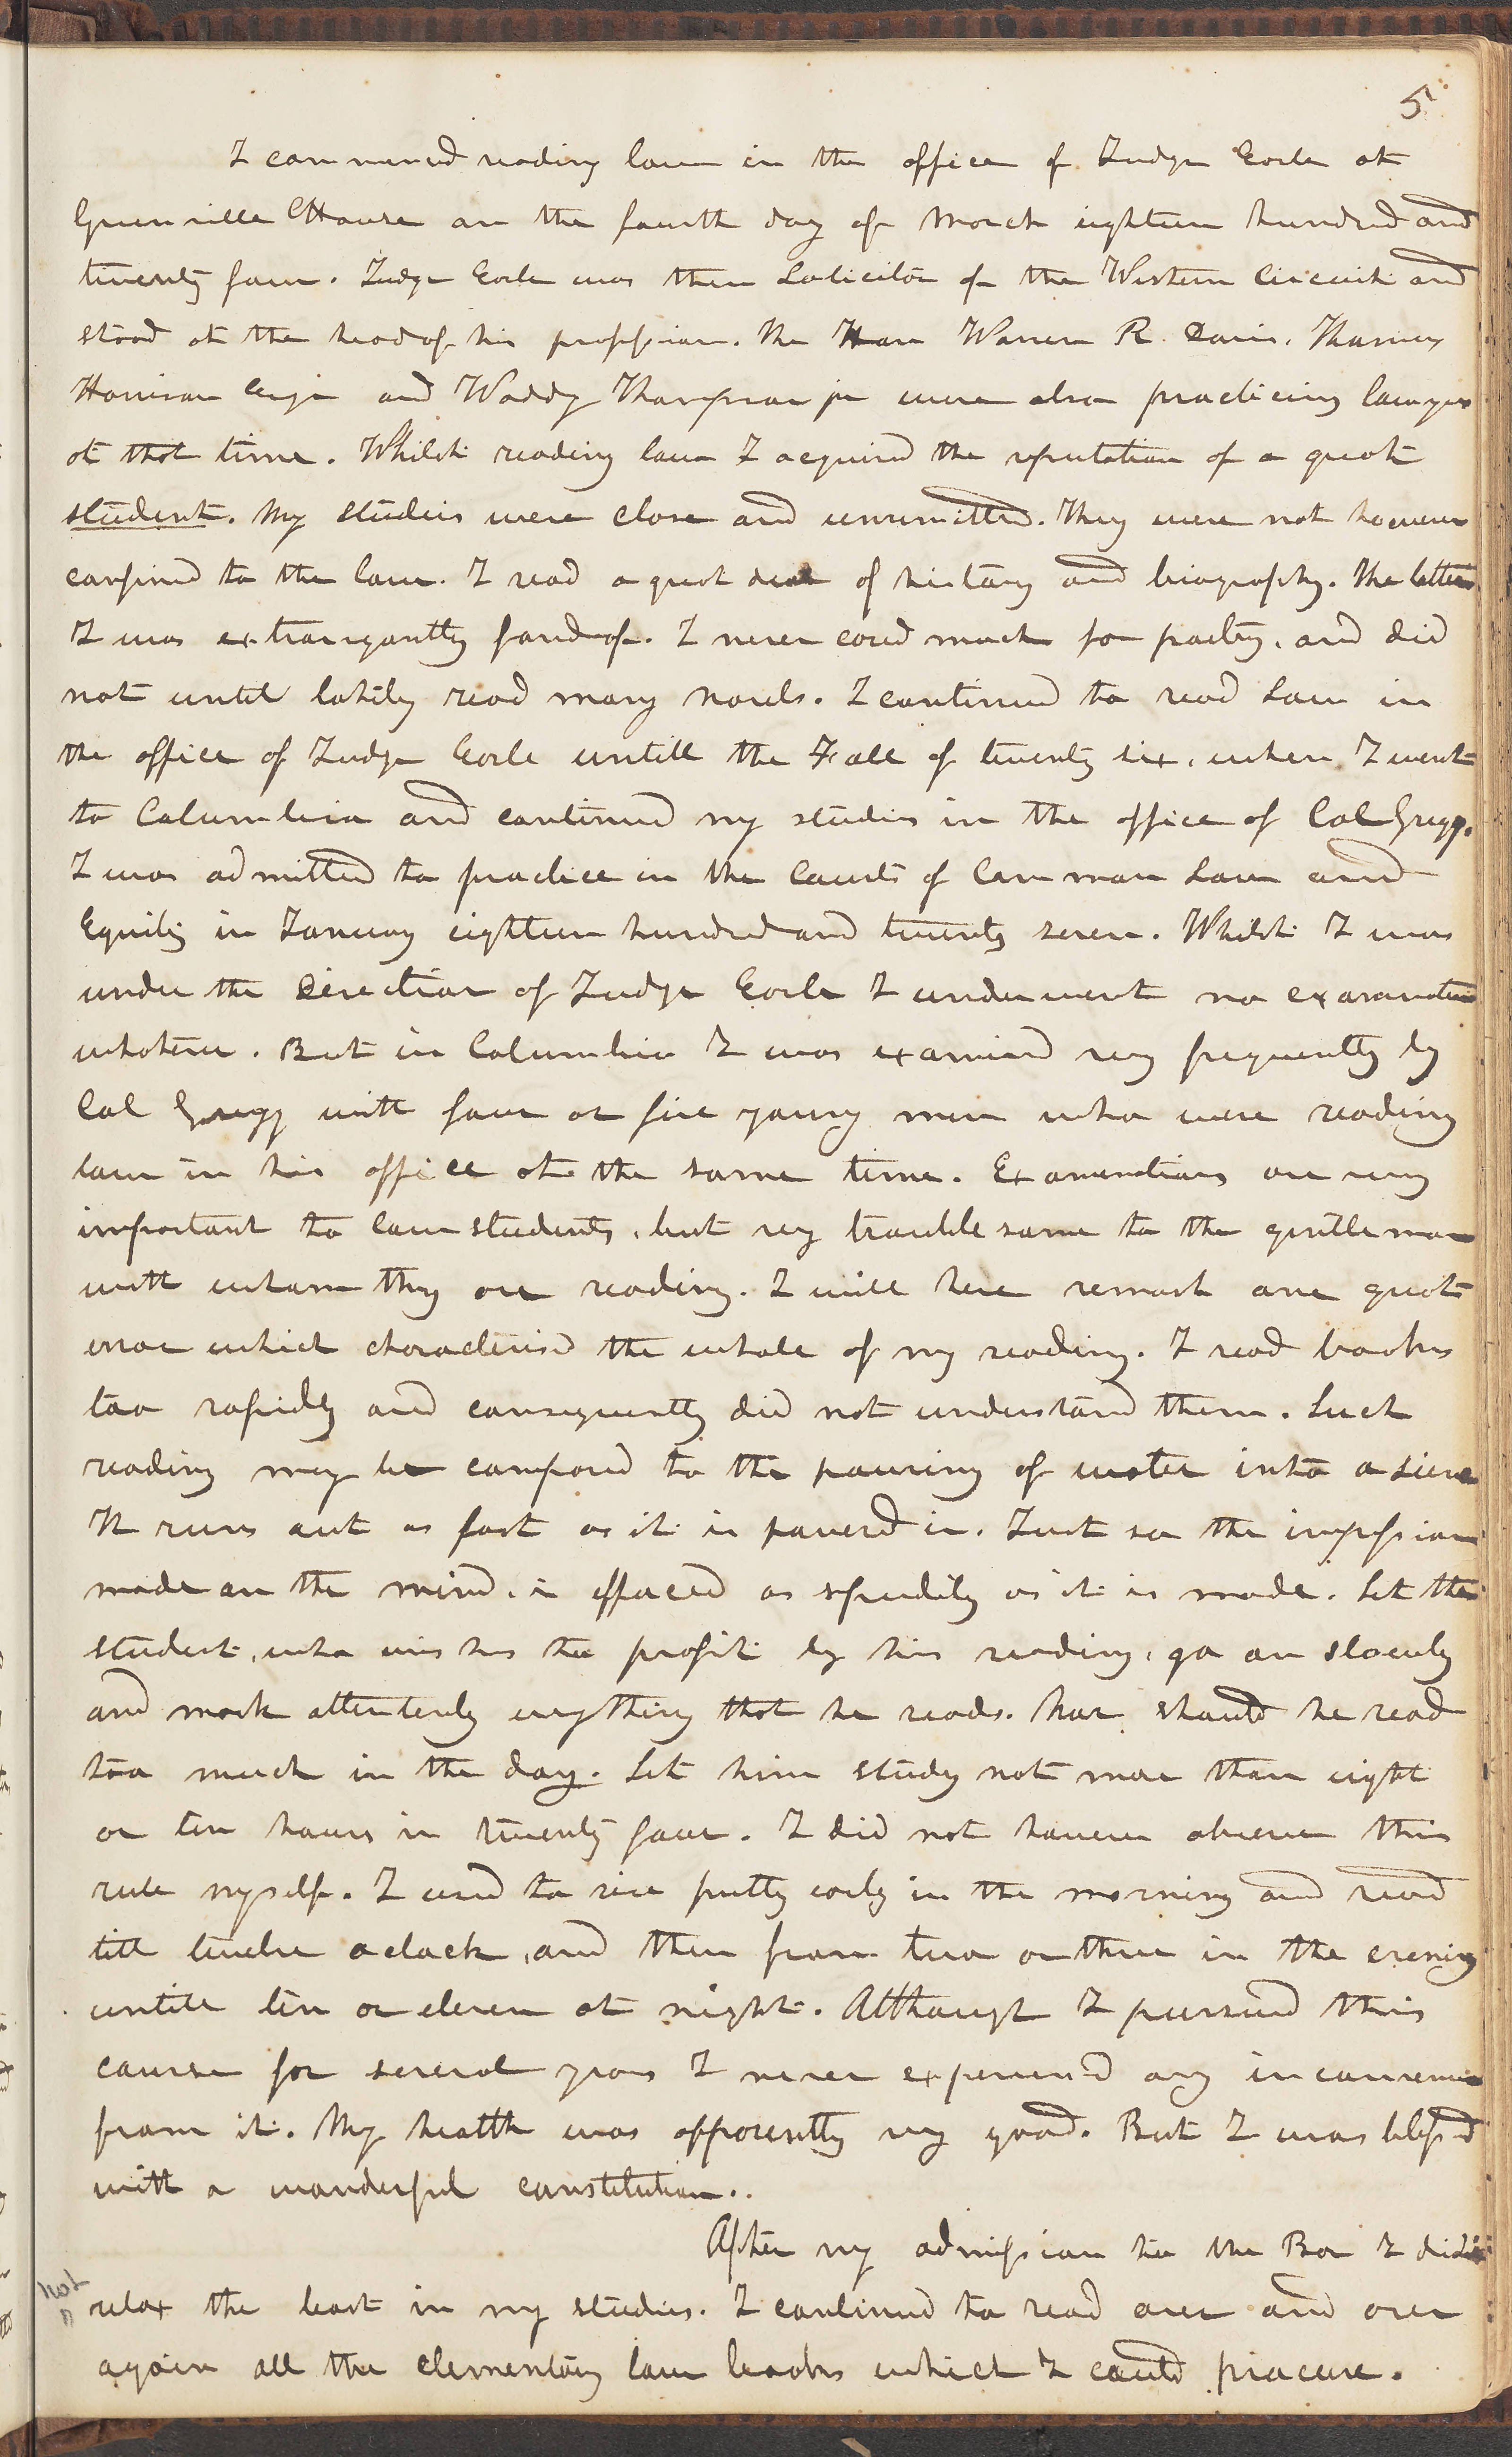 51
I commenced reading law in the office of Judge Earle at
Greenville CHouse on the fourth day of March eighteen hundred and
twenty four. Judge Earle was then Solicitor of the Western Circuit and
stood at the head of his profession. The Hon Warren R. Davis, Thomas
Harrison Esqr and Waddy Thompson jr were also practicing lawyers
at that time. Whilst reading law I acquired the reputation of a great
student. My studies were close and unremitted. They were not however
confined to the law. I read a great deal of history and biography. The latter
I was extravagantly fond of. I never cared much for poetry, and did
not until lately read many novels. I continued to read Law in
the office of Judge Earle untill the Fall of twenty six, when I went
to Columbia and continued my studies in the office of Col Gregg.
I was admitted to practice in the Courts of Common Law and
Equity in January eighteen hundred and twenty seven. Whilst I was
under the direction of Judge Earle I underwent no examination
whatever. But in Columbia I was examined very frequently by
Col Gregg with four or five young men who were reading
law in his office at the same time. Examinations are very
important to law students, but very troublesome to the gentleman
with whom they are reading. I will here remark one great
error which characterised the whole of my reading. I read books
too rapidly and consequently did not understand them. Such
reading may be compared to the pouring of water into a sieve
It runs out as fast as it is poured in. Just so the impression
made on the mind, is effaced as speedily as it is made. Let the
student, who wishes to profit by his reading, go on slowly
and mark attentively everything that he reads. Nor should he read
too much in the day. Let him study not more than eight
or ten hours in twenty four. I did not however observe this
rule myself. I used to rise pretty early in the morning and read
till twelve oclock, and then from two or three in the evening
untill ten or eleven at night. Although I pursued this
course for several years I never experienced any inconvenience
from it. My health was apparently very good. But I was blessed
with a wonderful constitution..
After my admission to the Bar I did
not
relax the least in my studies. I continued to read over and over
again all the elementary law books which I could procure.